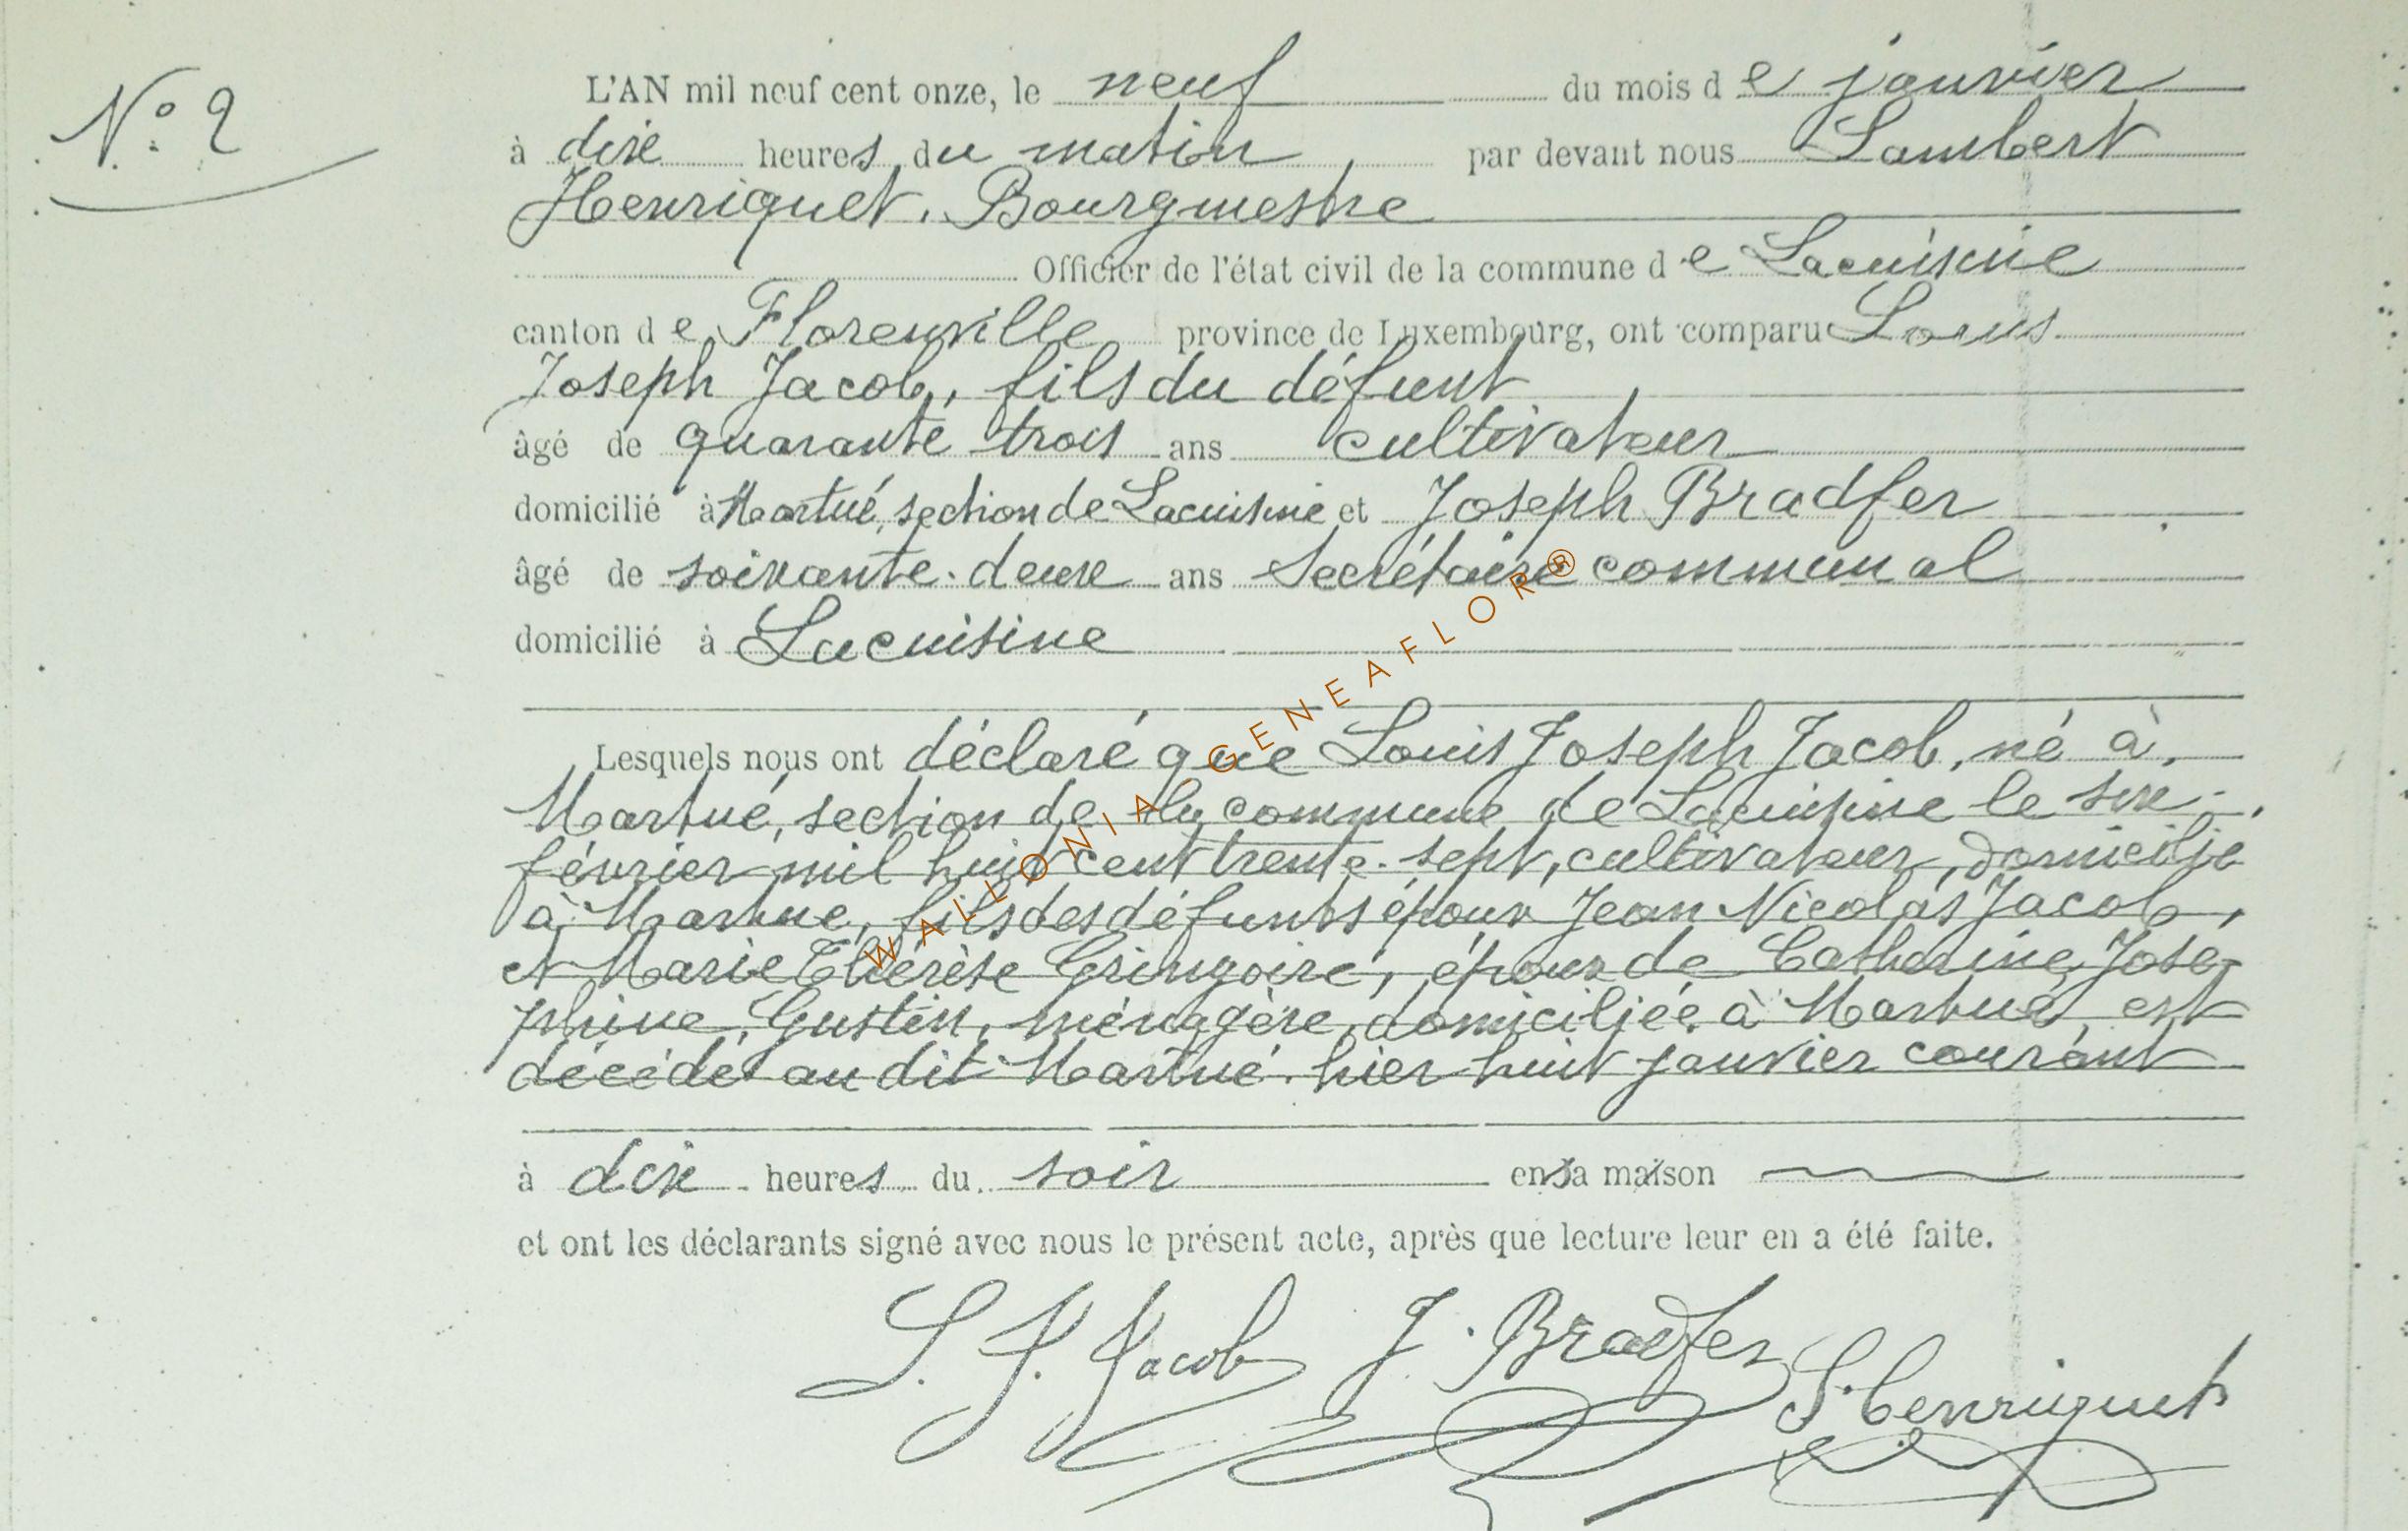 N° 2
L'AN mil neuf cent onze, le neuf du mois de janvier
à dix heures du matin, par devant nous Lambert
Henriquet, Bourgmestre
Officier de l'état civil de la commune de Lacuisine
canton de Florenville province de Luxembourg, ont comparu Louis
Joseph Jacob, fils du défunt
âgé de quarante trois ans cultivateur
domicilié à Martué, section de Lacuisine et Joseph Bradfer
âgé de soixante-deux ans Secrétaire communal
domicilié à Lacuisine
Lesquels nous ont déclaré que Louis Joseph Jacob, né à
Martué, section de la commune de Lacuisine le six
février mil huit cent trente-sept, cultivateur, domicilié
à Martué, fils des défunts époux Jean Nicolas Jacob,
et Marie Thérèse Gringoire, époux de Catherine José-
phine Gustin, ménagère, domiciliée à Martué, est
décédé au dit Martué hier huit janvier courant
à dix heures du soir en sa maison
et ont les déclarants signé avec nous le présent acte, après que lecture leur en a été faite.
L. J. Jacob J. Bradfer L Henriquet
WALLONIA GENEAFLOR®